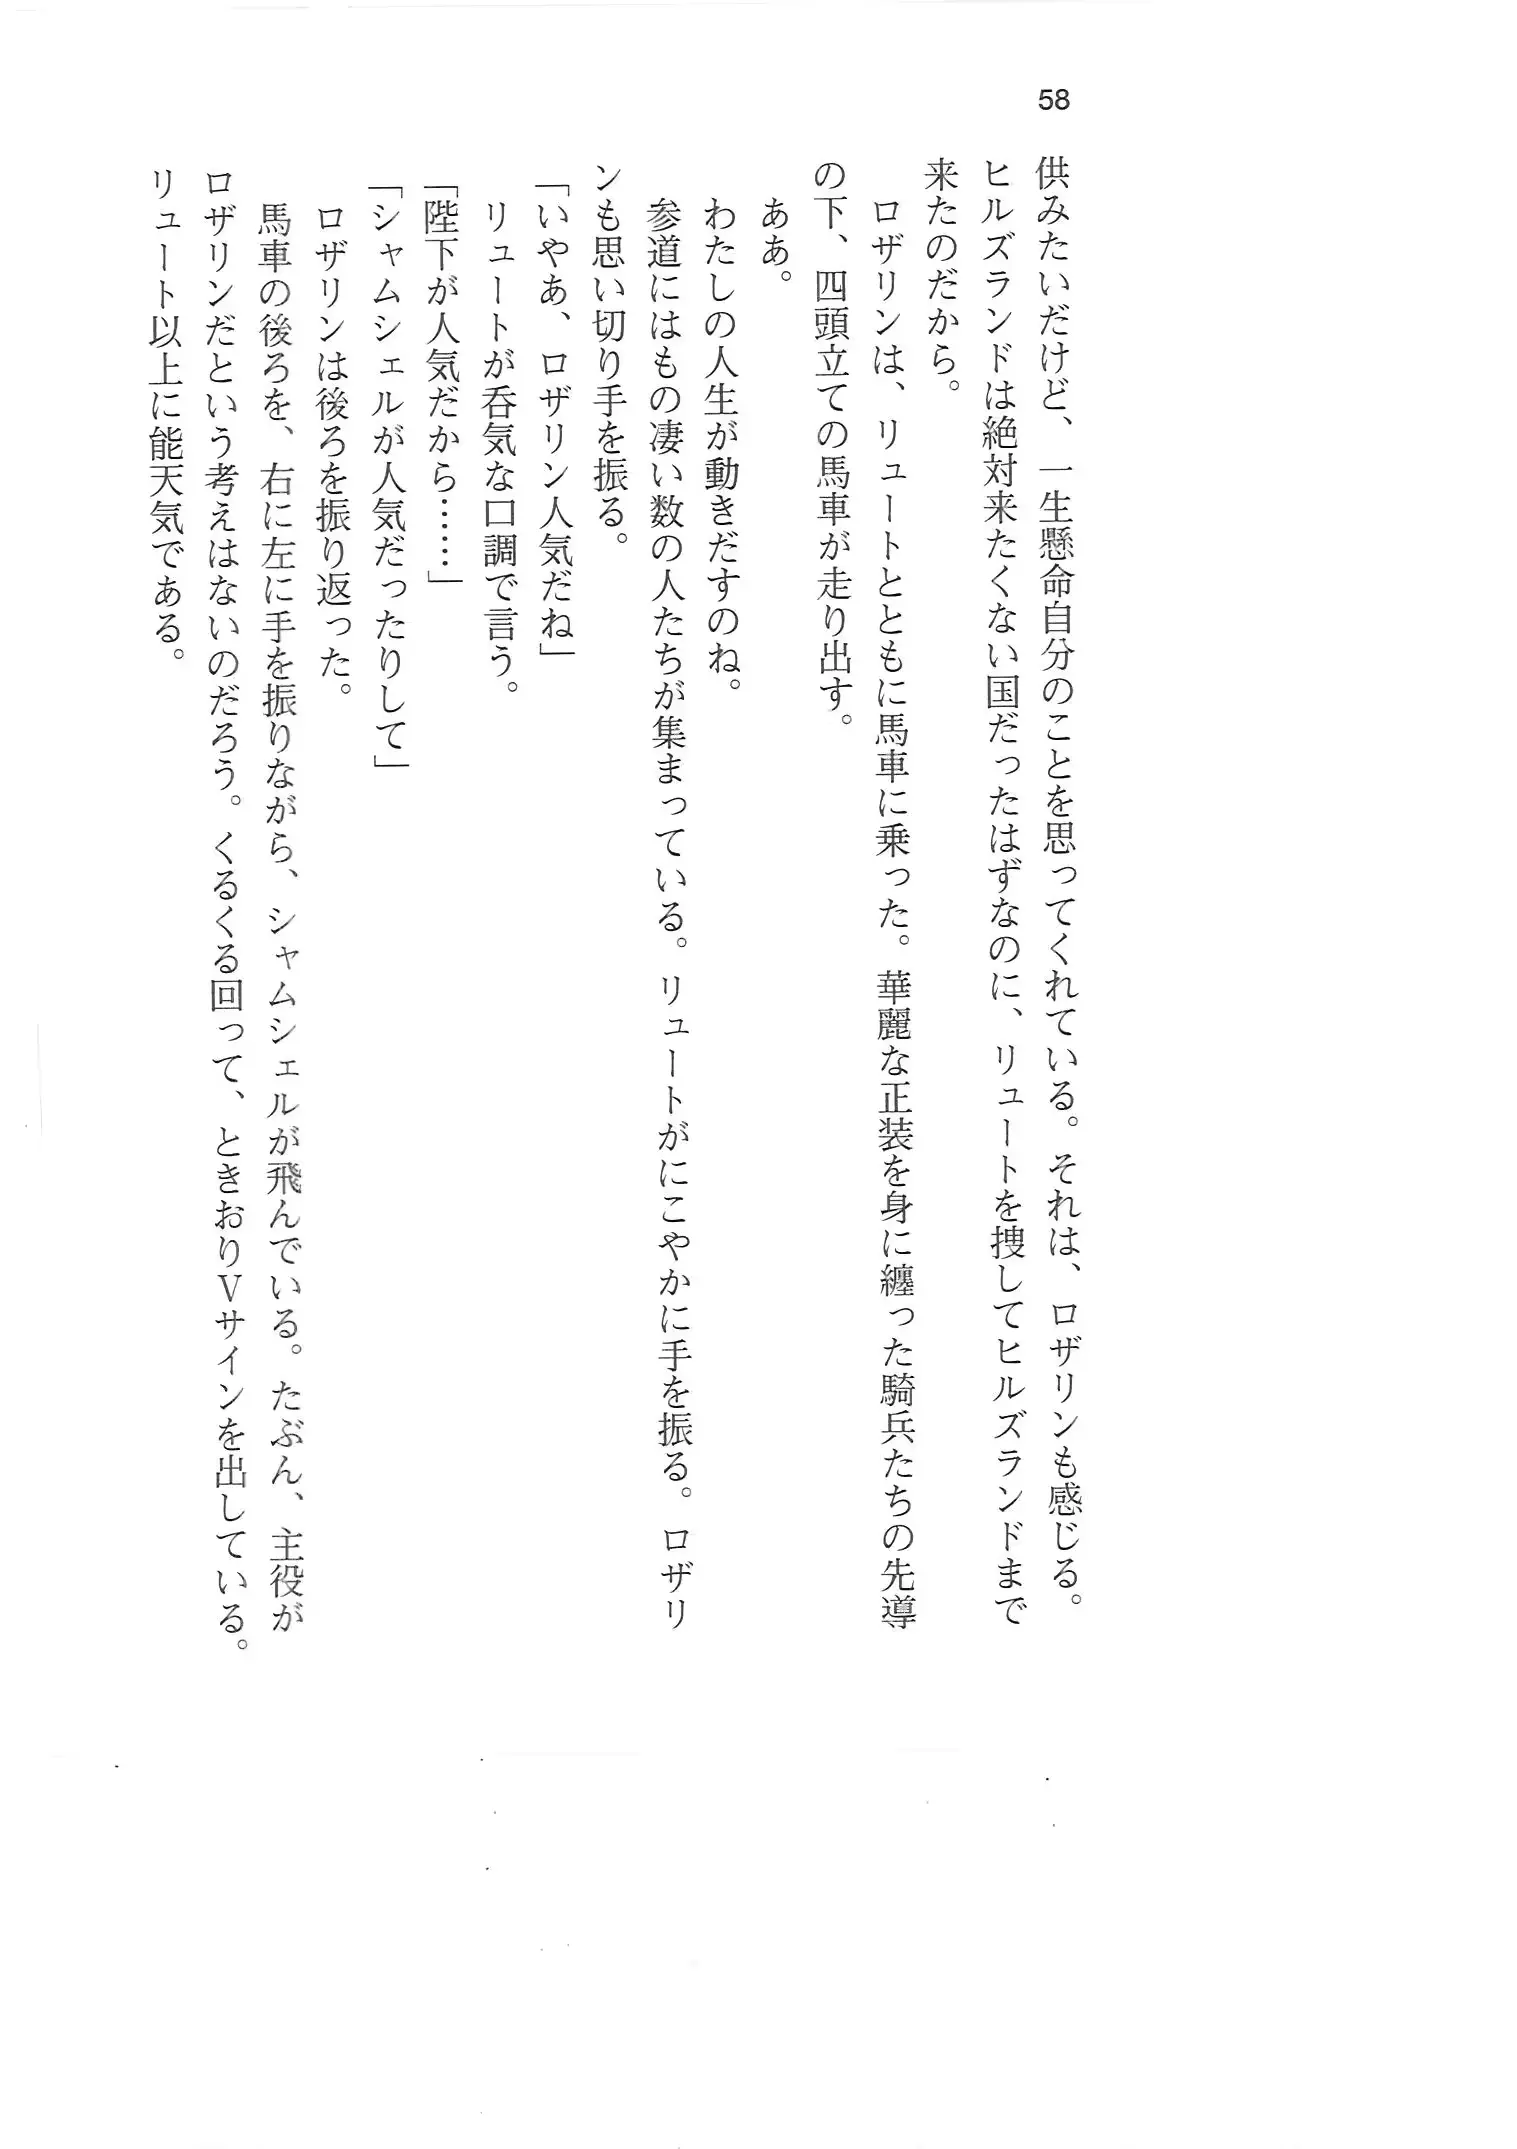 58
供みたいだけど、一生懸命自分のことを思ってくれている。それは、ロザリンも感じる。
ヒルズランドは絶対来たくない国だったはずなのに、リュートを捜してヒルズランドまで
来たのだから。
ロザリンは、リュートとともに馬車に乗った。華麗な正装を身に纏った騎兵たちの先導
の下、四頭立ての馬車が走り出す。
ああ。
わたしの人生が動きだすのね。
参道にはもの凄い数の人たちが集まっている。リュートがにこやかに手を振る。ロザリ
ンも思い切り手を振る。
「いやあ、ロザリン人気だね」
リュートが呑気な口調で言う。
「陛下が人気だから……」
「シャムシェルが人気だったりして」
ロザリンは後ろを振り返った。
馬車の後ろを、右に左に手を振りながら、シャムシェルが飛んでいる。たぶん、主役が
ロザリンだという考えはないのだろう。くるくる回って、ときおりVサインを出している。
リュート以上に能天気である。